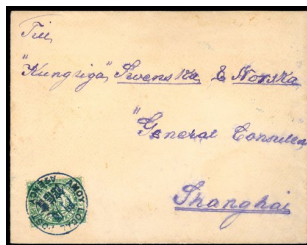 Till
"Kungliga" Swenska & Norska
"General Consulta
Shanghai
AMOY